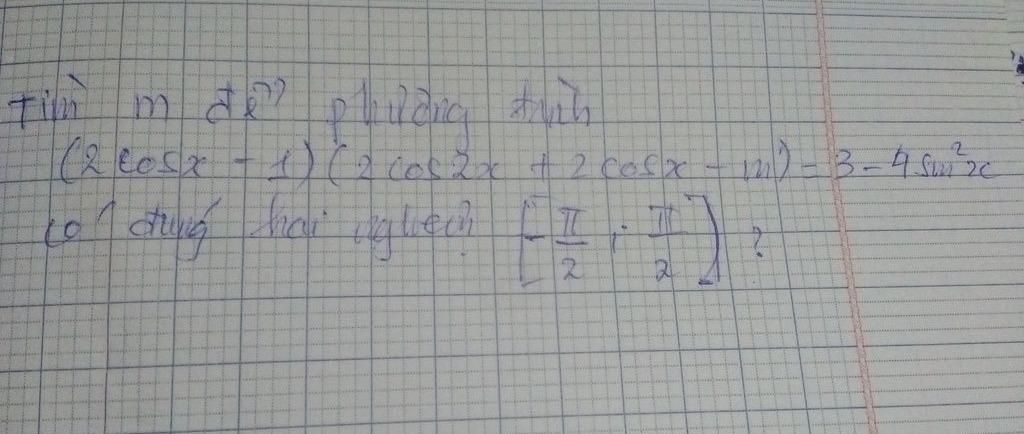 Tìm m để phương trình
(2cosx - 1)(2cos2x + 2cosx - m) = 3 - 4sin²x
có đúng hai nghiệm [-π/2 ; π/2] ?